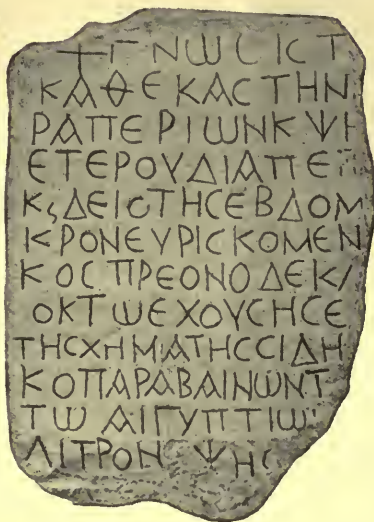 +ΓΝΩCΙCΤ
ΚΑΘΕΚΑCΤΗΝ
ΡΑΠΕΡΙΩΝΚΨΗ
ΕΤΕΡΟΥΔΙΑΠΕ
ΚϛΔΕΙCΤΗCΕΒΔΟΜ
ΚΡΟΝΕΥΡΙCΚΟΜΕΝ
ΚΟCΠΡΕΟΝΟΔΕΚ/
ΟΚΤΩΕΧΟΥCΗCΕ
ΤΗCΧΗΜΑΤΗCCΙΔΗ
ΚΟΠΑΡΑΒΑΙΝΩΝΤ
ΤΩΑΙΓΥΠΤΙΩ
ΛΙΤΡΟΝ ΨΗC